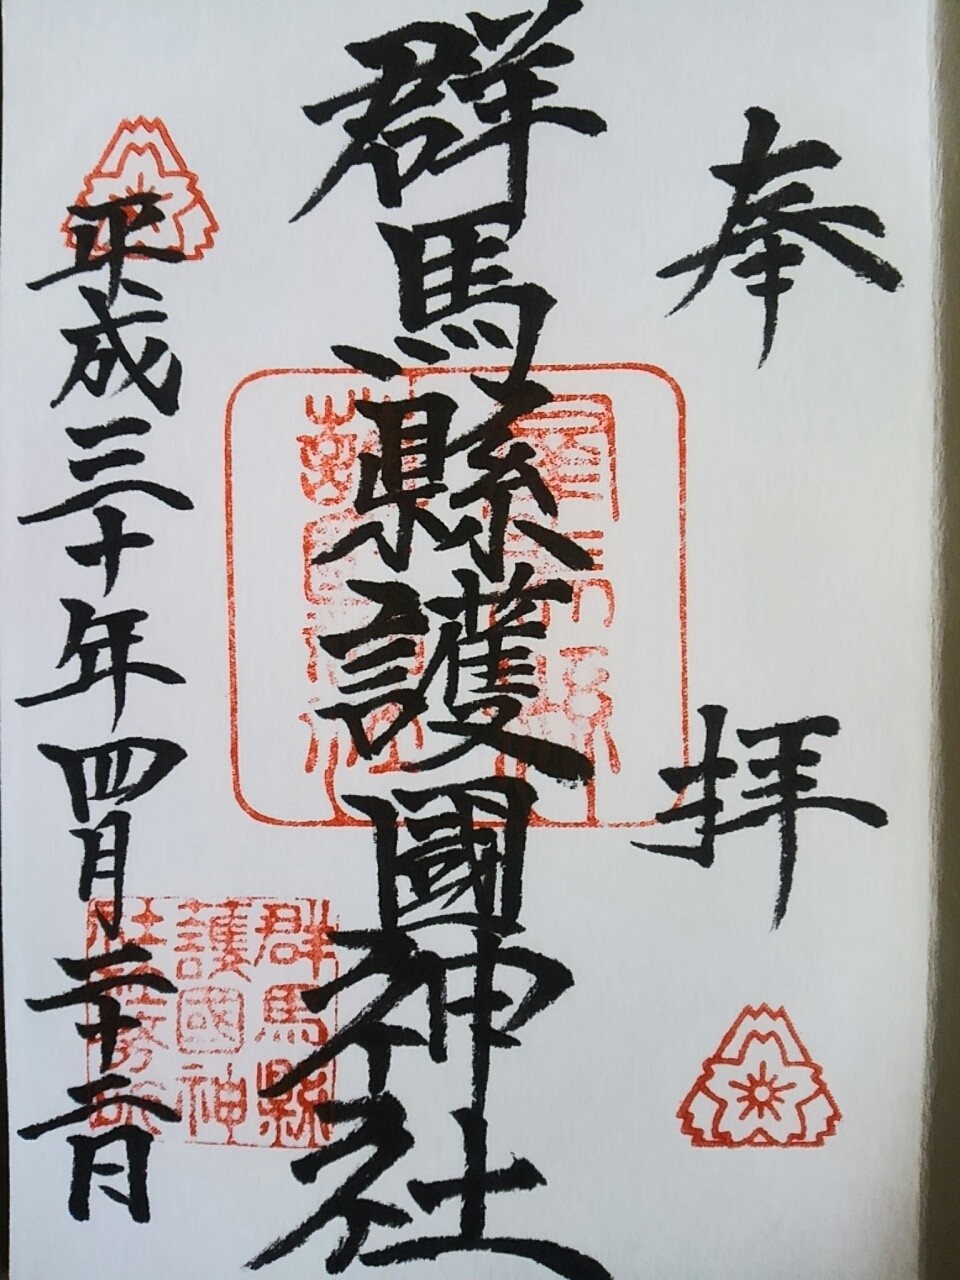 奉拝
群馬縣護國神社
群馬縣
護國神社
平成三十年四月二十二日
群馬縣
護國神
社務所